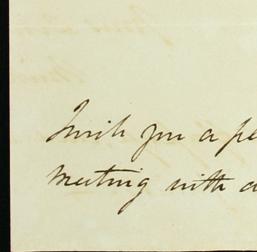 I wish you a pe
meeting with a